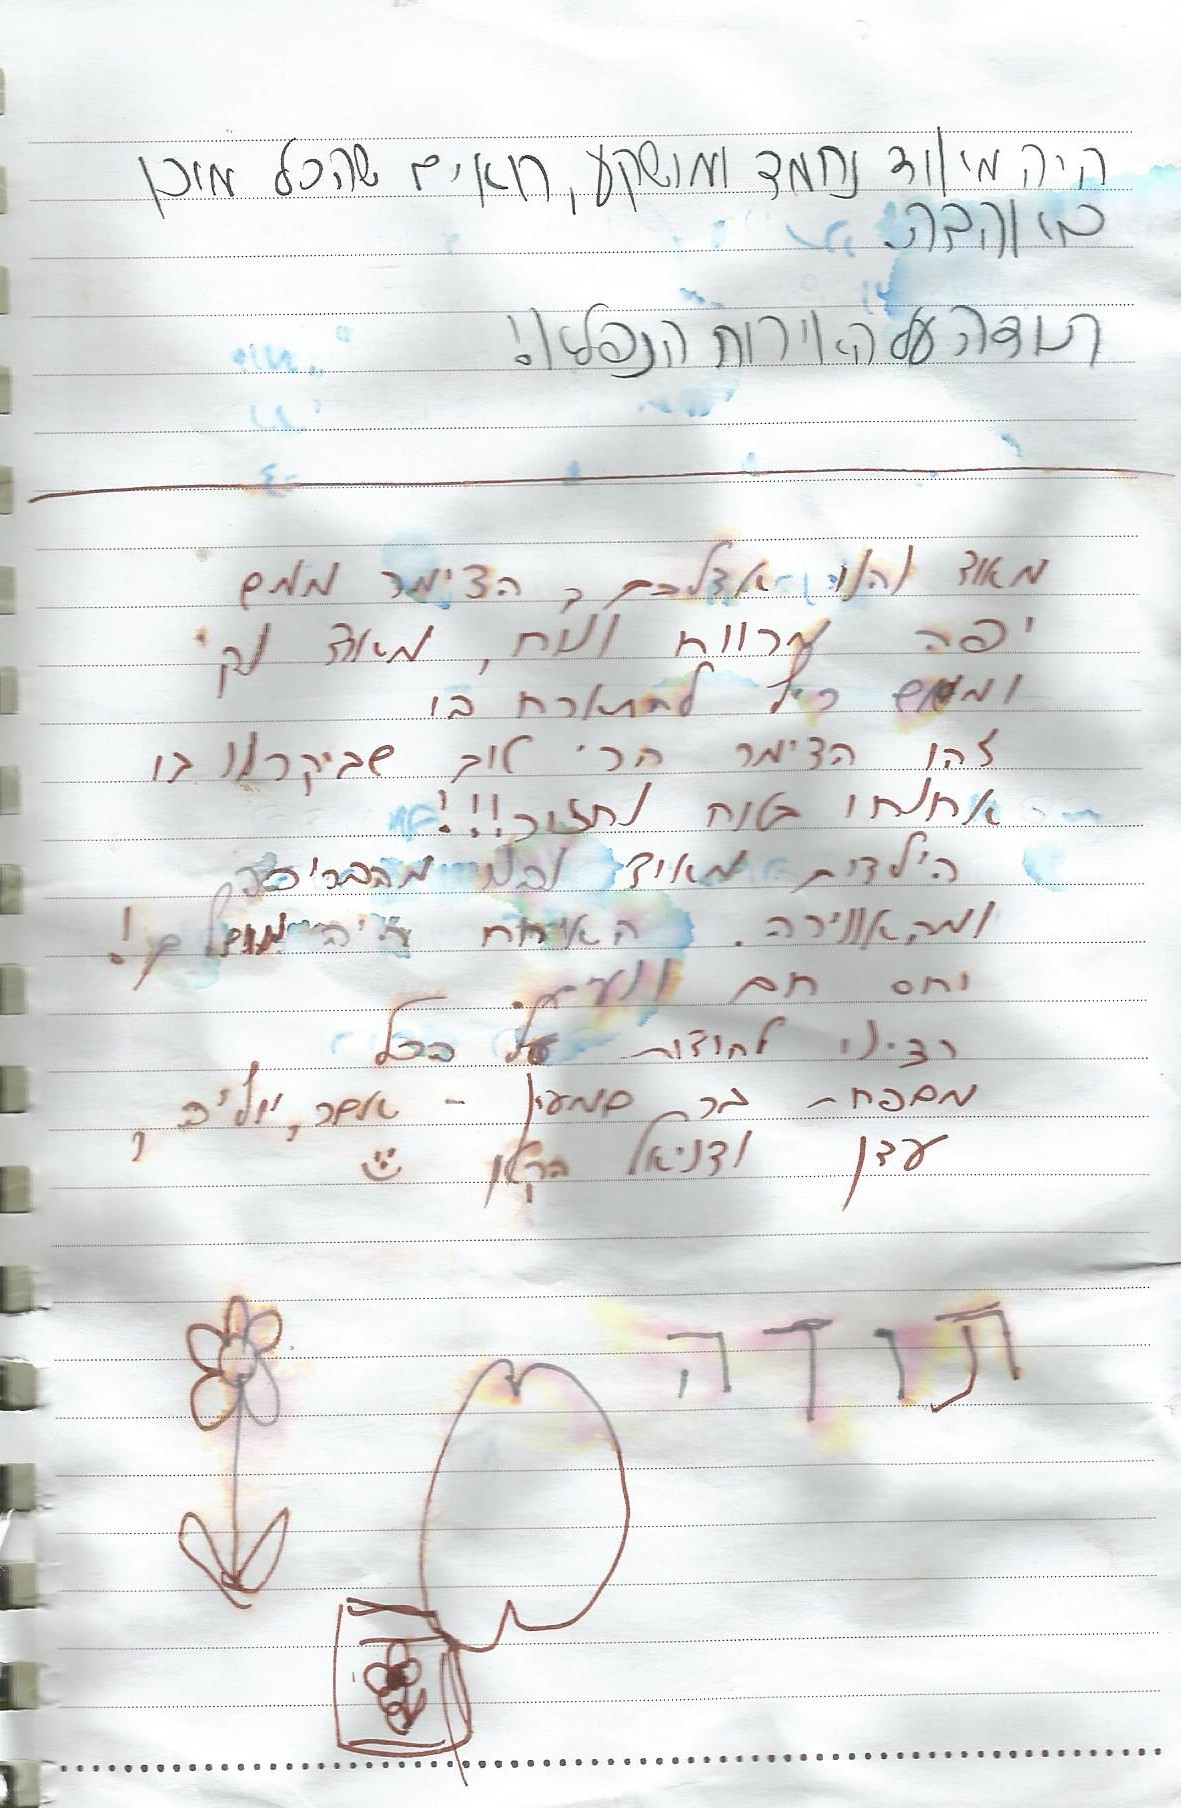 היה מיוד נחמד ומושקע, רואים שהכל מוכן
מיוהבה.
תודה על האירוח הנפליו!
מאוד נהנו אצלכם, הצימר ממש
יפה מרווח ונוח, מאוד נקי
וממש כיף להתארח בו
זהו הצימר הכי טוב שביקרנו בו
אנחנו בטוח נחזור!!!
הילדים מאוד נהנו מהבריכה
ומהאווירה. האירוח היה מושלם!
יחס חם ונעים.
רצינו להודות על הכל
משפחת בר סמעון - אשר, יוליה,
עדן ודניאל הקטן
תודה